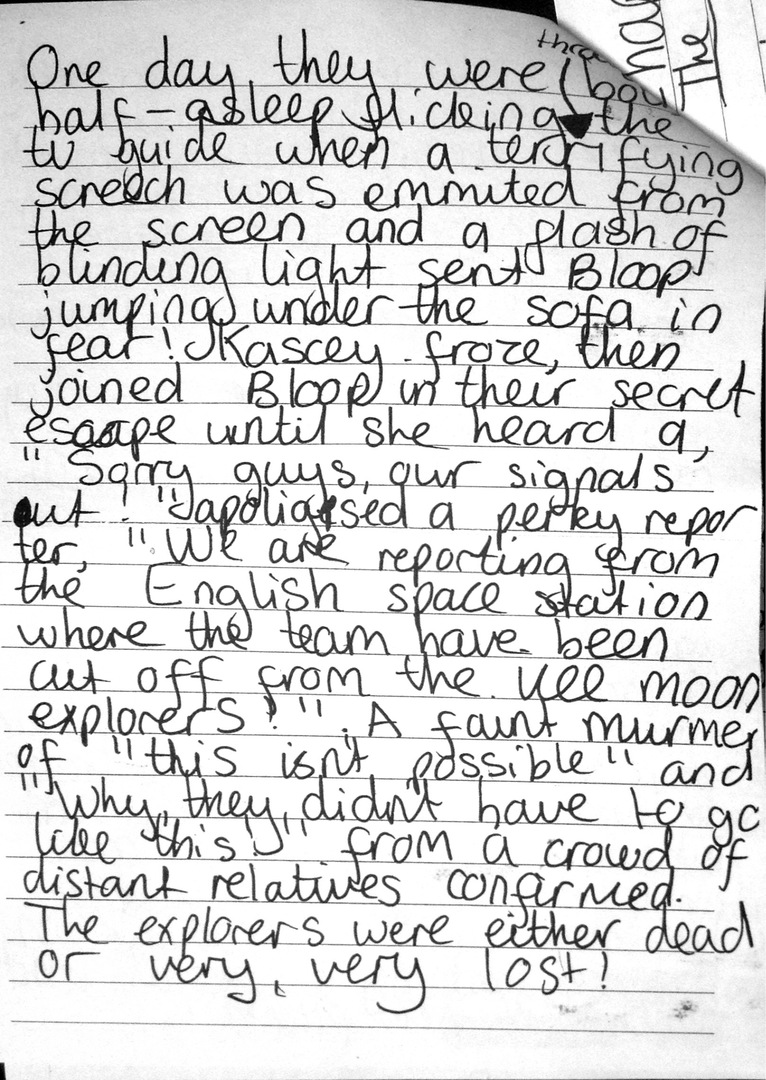 One day they were both
half-asleep flicking the
tv guide when a terrifying
screech was emmited from
the screen and a flash of
blinding light sent Bloop
jumping under the sofa in
fear! Kascey froze, then
joined Bloop in their secret
escape until she heard a,
"Sorry guys, our signals
out!" apoligised a perky repor
ter, "We are reporting from
the English space station
where the team have been
cut off from the moon
explorers!". A faint murmer
of "this isn't possible" and
"Why, they didn't have to go
like this!" from a crowd of
distant relatives confirmed.
The explorers were either dead
or very, very lost!
The